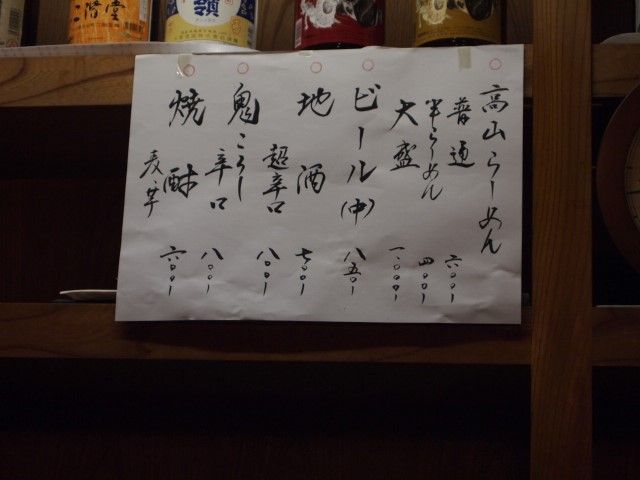 高山らーめん
普通 六〇〇ー
半らーめん 四〇〇ー
大盛 一、〇〇〇ー
ビール(中) 八五〇ー
地酒 七〇〇ー
鬼ころし
超辛口 八〇〇ー
辛口 八〇〇ー
焼酎 六〇〇ー
麦・芋
二階堂